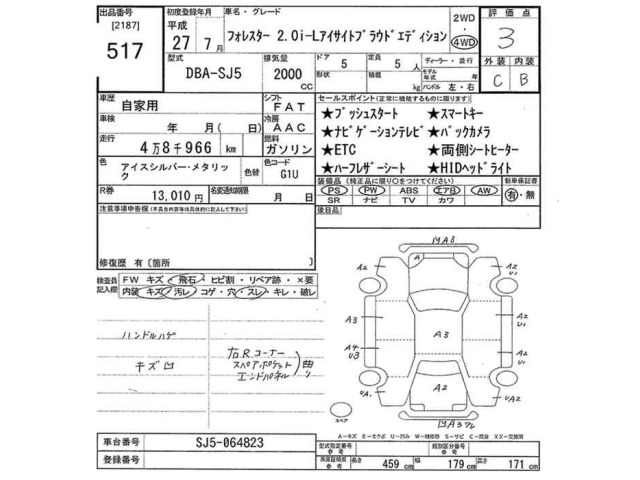 出品番号
[2187]
517
初度登録年月
平成
27年7月
車名・グレード
フォレスター 2.0i-Lアイサイトプラウドエディション
2WD
4WD
評価点
3
外装 内装
C B
型式
DBA-SJ5
排気量
2000
CC
ドア
5
形状
定員
5人
積載
kg
ディーラー・並行
モデル年式 年
ハンドル 左・右
車歴
自家用
シフト
FAT
車検
年 月(日)
冷房
AAC
走行
4万8千966 km
燃料
ガソリン
色
アイスシルバー・メタリック
色替
色コード
G1U
R券
13,010円
名変期限
月 日
セールスポイント(正常に機能するものに限ります)
★プッシュスタート ★スマートキー
★ナビゲーションテレビ ★バックカメラ
★ETC ★両側シートヒーター
★ハーフレザーシート ★HIDヘッドライト
装備品(純正品に限り○をつけてください)
PS PW ABS エアB AW
SR ナビ TV カワ
新車保証書
有・無
後日品
注意事項申告欄(不具合箇所等は具体的に記入して下さい)
修復歴 有〔箇所 〕
検査員記入欄
FW キズ・飛石・ヒビ割・リペア跡・×要
内装 キズ・汚レ・コゲ・穴・スレ・キレ・破レ
ハンドルハゲ
キズ凹
右Rコーナー
スペアポケット
エンドパネル
曲り
MA3
A
A2
A2
U1
A3
A3
A2
U1
A4
U3
A2
U1
A2
UA1
UA2
MA3ワレ
スペア
A-キズ E-エクボ U-凹み W-補修跡 S-サビ C-腐食 XX-交換済
車台番号
SJ5-064823
登録番号
型式指定番号
参考
類別区分番号
参考
車庫証明用
参考
長さ 459 cm
幅 179 cm
高さ 171 cm